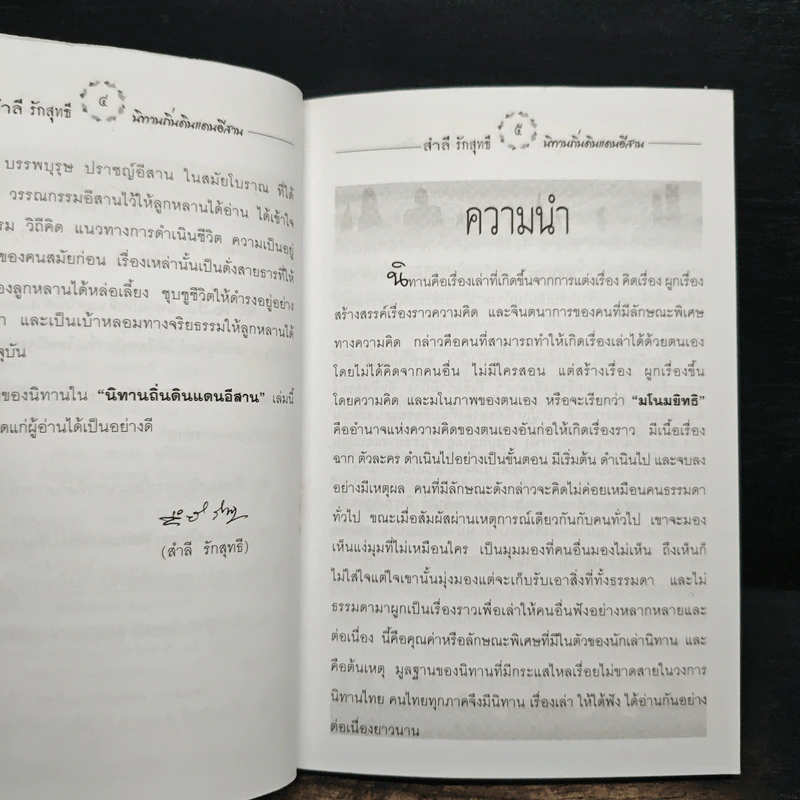 สำลี รักสุทธี ๔ นิทานถิ่นดินแดนอีสาน
บรรพบุรุษ ปราชญ์อีสาน ในสมัยโบราณ ที่ได้
วรรณกรรมอีสานไว้ให้ลูกหลานได้อ่าน ได้เข้าใจ
รม วิถีคิด แนวทางการดำเนินชีวิต ความเป็นอยู่
ของคนสมัยก่อน เรื่องเหล่านั้นเป็นดั่งสายธารที่ให้
องลูกหลานได้หล่อเลี้ยง ชุบชูชีวิตให้ดำรงอยู่อย่าง
า และเป็นเบ้าหลอมทางจริยธรรมให้ลูกหลานได้
จุบัน
ของนิทานใน “นิทานถิ่นดินแดนอีสาน” เล่มนี้
ดแก่ผู้อ่านได้เป็นอย่างดี
(สำลี รักสุทธี)
สำลี รักสุทธี ๕ นิทานถิ่นดินแดนอีสาน
ความนำ
นิทานคือเรื่องเล่าที่เกิดขึ้นจากการแต่งเรื่อง คิดเรื่อง ผูกเรื่อง
สร้างสรรค์เรื่องราวความคิด และจินตนาการของคนที่มีลักษณะพิเศษ
ทางความคิด กล่าวคือคนที่สามารถทำให้เกิดเรื่องเล่าได้ด้วยตนเอง
โดยไม่ได้คิดจากคนอื่น ไม่มีใครสอน แต่สร้างเรื่อง ผูกเรื่องขึ้น
โดยความคิด และมโนภาพของตนเอง หรือจะเรียกว่า “มโนมยิทธิ”
คืออำนาจแห่งความคิดของตนเองอันก่อให้เกิดเรื่องราว มีเนื้อเรื่อง
ฉาก ตัวละคร ดำเนินไปอย่างเป็นขั้นตอน มีเริ่มต้น ดำเนินไป และจบลง
อย่างมีเหตุผล คนที่มีลักษณะดังกล่าวจะคิดไม่ค่อยเหมือนคนธรรมดา
ทั่วไป ขณะเมื่อสัมผัสผ่านเหตุการณ์เดียวกันกับคนทั่วไป เขาจะมอง
เห็นแง่มุมที่ไม่เหมือนใคร เป็นมุมมองที่คนอื่นมองไม่เห็น ถึงเห็นก็
ไม่ใส่ใจแต่ใจเขานั้นมุ่งมองแต่จะเก็บรับเอาสิ่งที่ทั้งธรรมดา และไม่
ธรรมดามาผูกเป็นเรื่องราวเพื่อเล่าให้คนอื่นฟังอย่างหลากหลายและ
ต่อเนื่อง นี้คือคุณค่าหรือลักษณะพิเศษที่มีในตัวของนักเล่านิทาน และ
คือต้นเหตุ มูลฐานของนิทานที่มีกระแสไหลเรื่อยไม่ขาดสายในวงการ
นิทานไทย คนไทยทุกภาคจึงมีนิทาน เรื่องเล่า ให้ได้ฟัง ได้อ่านกันอย่าง
ต่อเนื่องยาวนาน